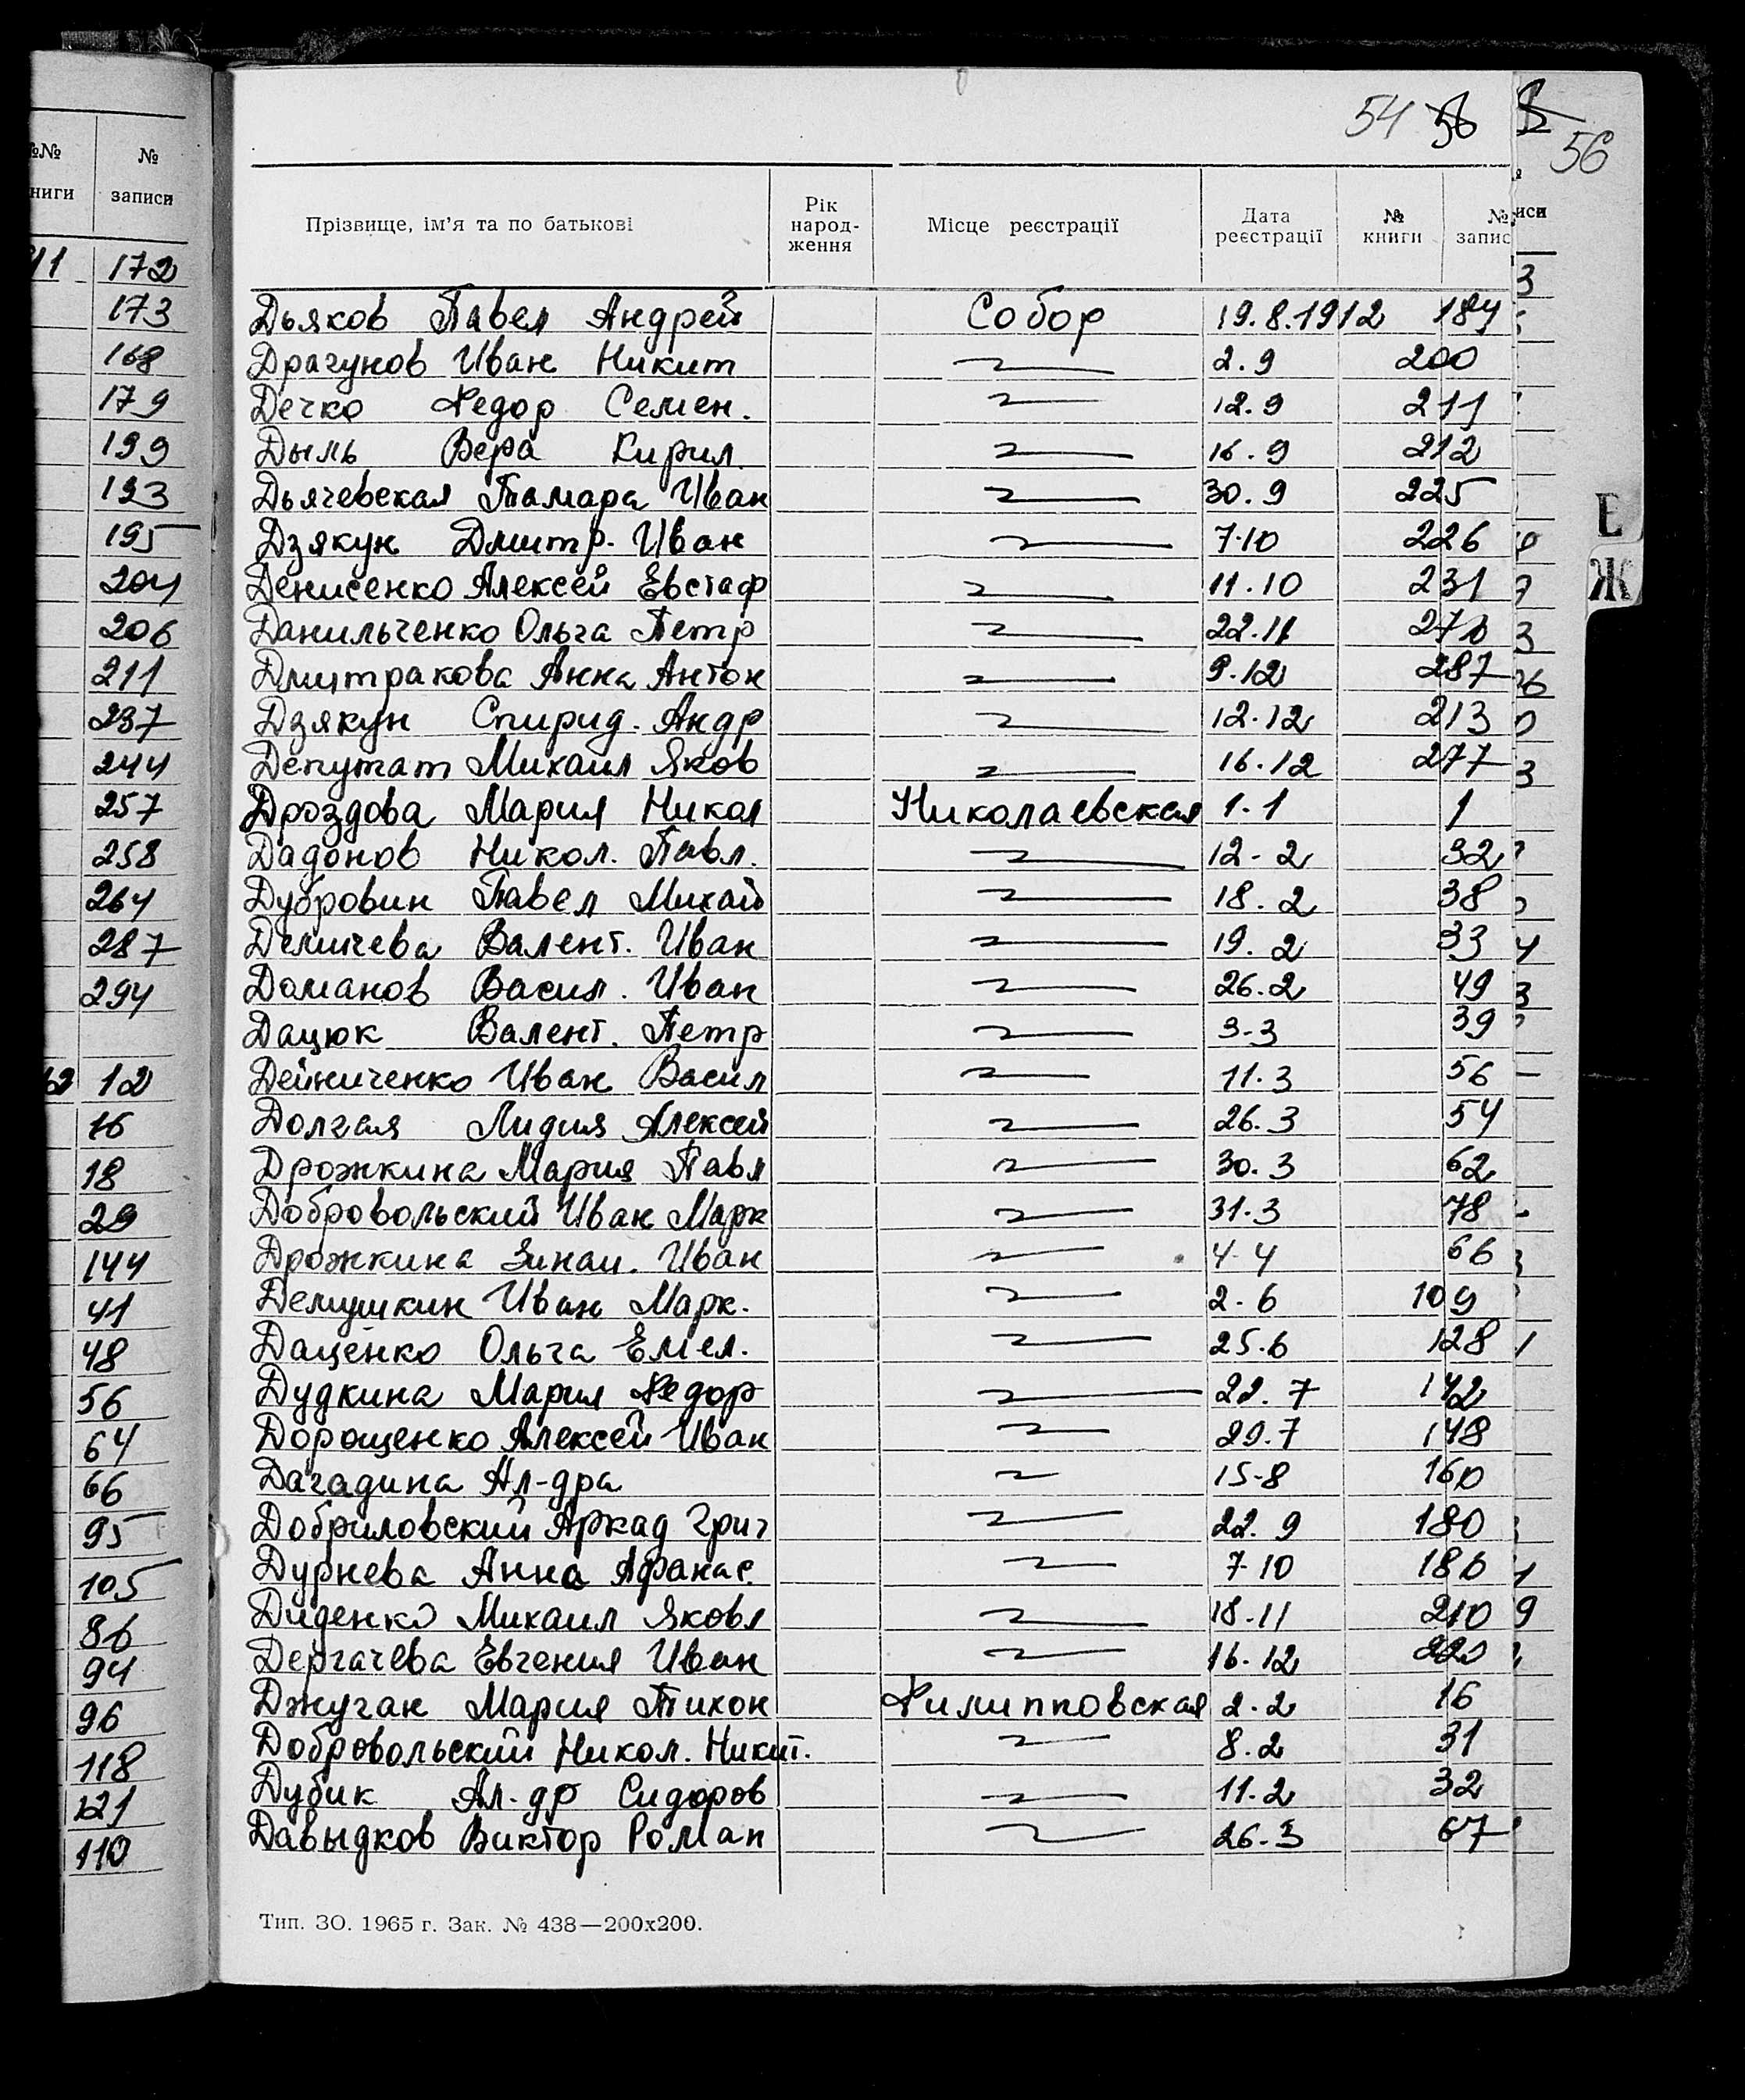 54 56
56
№№ книги
№ записи
11 172
173
168
179
199
193
195
204
206
211
237
244
257
258
264
287
294
12
16
18
29
144
41
48
56
64
66
95
105
86
94
96
118
121
110
Прізвище, ім'я та по батькові
Рік народ-ження
Місце реєстрації
Дата реєстрації
№ книги
№ запис
Дьяков Павел Андрей Собор 19.8.1912 184
Драгунов Иван Никит 2.9 200
Дечко Федор Семен. 12.9 211
Дыль Вера Кирил. 16.9 212
Дьячевская Тамара Иван 30.9 225
Дзякун Дмитр. Иван 7.10 226
Денисенко Алексей Евстаф 11.10 231
Данильченко Ольга Петр 22.11 270
Дмитракова Анна Антон 9.12 287
Дзякун Спирид. Андр 12.12 213
Депутат Михаил Яков 16.12 277
Дроздова Мария Никол Николаевская 1.1 1
Дадонов Никол. Павл. 12-2 32
Дубровин Павел Михай 18.2 38
Демичева Валент. Иван 19.2 33
Доманов Васил. Иван 26.2 49
Дацюк Валент. Петр 3-3 39
Дейниченко Иван Васил 11.3 56
Долгая Лидия Алексей 26.3 54
Дрожкина Мария Павл 30.3 62
Добровольский Иван Марк 31.3 78
Дрожкина Зинаи. Иван 4-4 66
Демушкин Иван Марк. 2-6 109
Даценко Ольга Емел. 25.6 128
Дудкина Мария Федор 22.7 142
Дорощенко Алексей Иван 29.7 148
Дагадина Ал-дра 15-8 160
Добриловский Аркад Григ 22.9 180
Дурнева Анна Афанас. 7-10 186
Диденко Михаил Яковл 18-11 210
Дергачева Евгения Иван 16.12 220
Джуган Мария Тихон Филипповская 2.2 16
Добровольский Никол. Никит. 8.2 31
Дубик Ал-др Сидоров 11.2 32
Давыдков Виктор Роман 26-3 67
Е
Ж
Тип. ЗО. 1965 г. Зак. № 438—200х200.